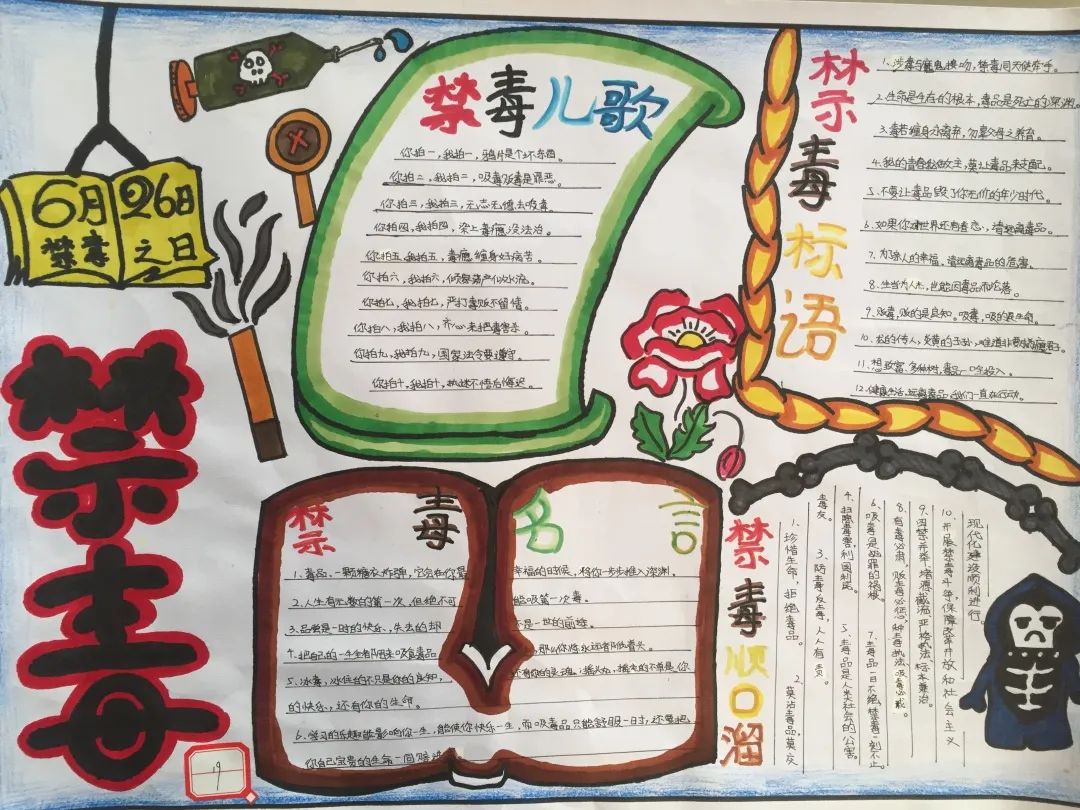 6月26日
禁毒之日
禁毒
禁毒儿歌
你拍一,我拍一,鸦片是个坏东西。
你拍二,我拍二,吸毒贩毒是罪恶。
你拍三,我拍三,无志无德去吸毒。
你拍四,我拍四,染上毒瘾没法治。
你拍五,我拍五,毒瘾缠身好痛苦。
你拍六,我拍六,倾家荡产似水流。
你拍七,我拍七,严打毒贩不留情。
你拍八,我拍八,齐心来把毒害杀。
你拍九,我拍九,国家法令要遵守。
你拍十,我拍十,执迷不悟后悔迟。
禁毒标语
1、涉毒与魔鬼接吻,禁毒同天使牵手。
2、生命是生存的根本,毒品是死亡的深渊。
3、毒若缠身永离弃,勿辜父母之养育。
4、我的青春我做主,莫让毒品来支配。
5、不要让毒品毁了你无价的年少时代。
6、如果你对世界还有眷恋,请远离毒品。
7、为家人的幸福,请远离毒品的危害。
8、生当为人杰,岂能因毒品而沦落。
9、贩毒,贩的是良知。吸毒,吸的是生命。
10、龙的传人,炎黄的子孙,
11、想致富,多种树,毒品一口全投入。
12、健康生活,远离毒品,我们一直在行动。
禁毒名言
1、毒品、一颗糖衣炸弹,它会在你最幸福的时候,将你一步步推入深渊。
2、人生有无数的第一次,但绝不可能吸第一次毒。
3、品尝是一时的快乐,失去的却不是一世的前途。
4、把自己的一生年阴用来吸食毒品,那么你将永远有阴雨当头。
5、冰毒,冰住的不只是你的良知,还有你的灵魂。摇头丸,摇走的不单是你
的快乐,还有你的生命。
6、学习的乐趣能影响你一生,能使你快乐一生,而吸毒品只能舒服一日才,还要把
你自己宝贵的生命一同赔进
禁毒顺口溜
1、珍惜生命,拒绝毒品。 2、莫沾毒品,莫交
毒友。 3、防毒反毒,人人有责。
4、扫除毒害,利国利民。 5、毒品是人类社会的公害。
6、吸毒是犯罪的祸根。 7、毒品一日不绝,禁毒一刻不止。
8、有毒必肃,贩毒必惩,种毒必究,吸毒必戒。
9、四禁并举,堵源截流,严格执法,标本兼治。
10、开展禁毒斗争,保障改革开放和社会主义
现代化建设顺利进行。
19